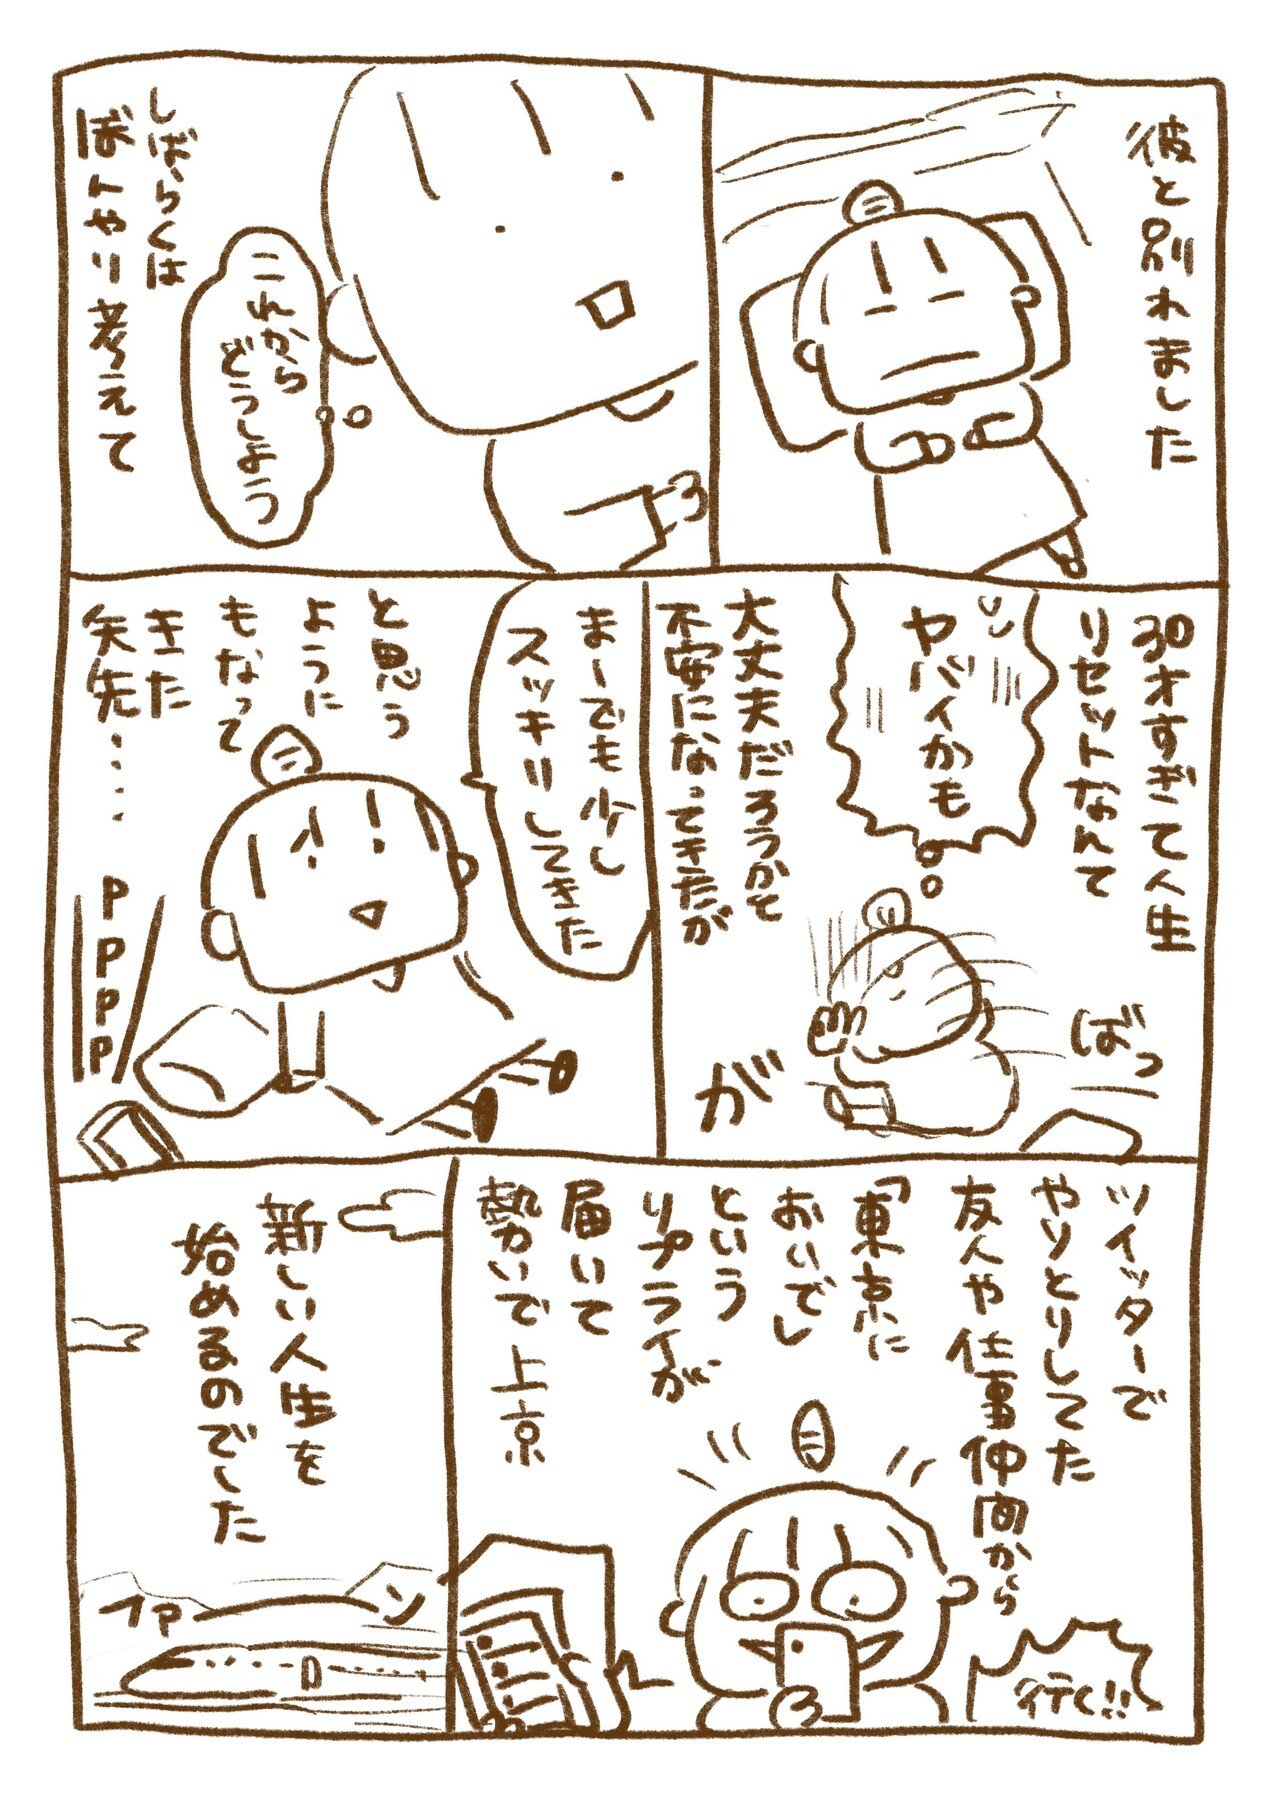 彼と別れました
しばらくは
ぼんやり考えて
これから
どうしよう
30才すぎて人生
リセットなんて
ヤバイかも
大丈夫だろうかと
不安になってきたが
ばっ
が
まーでも少し
スッキリしてきた
と思う
ように
もなって
きた
矢先・・・・
PPPP
ツイッターで
やりとりしてた
友人や仕事仲間から
「東京に
おいでし
という
リプライが
届いて
勢いで上京
行く!!
新しい人生を
始めるのでした
ファーン